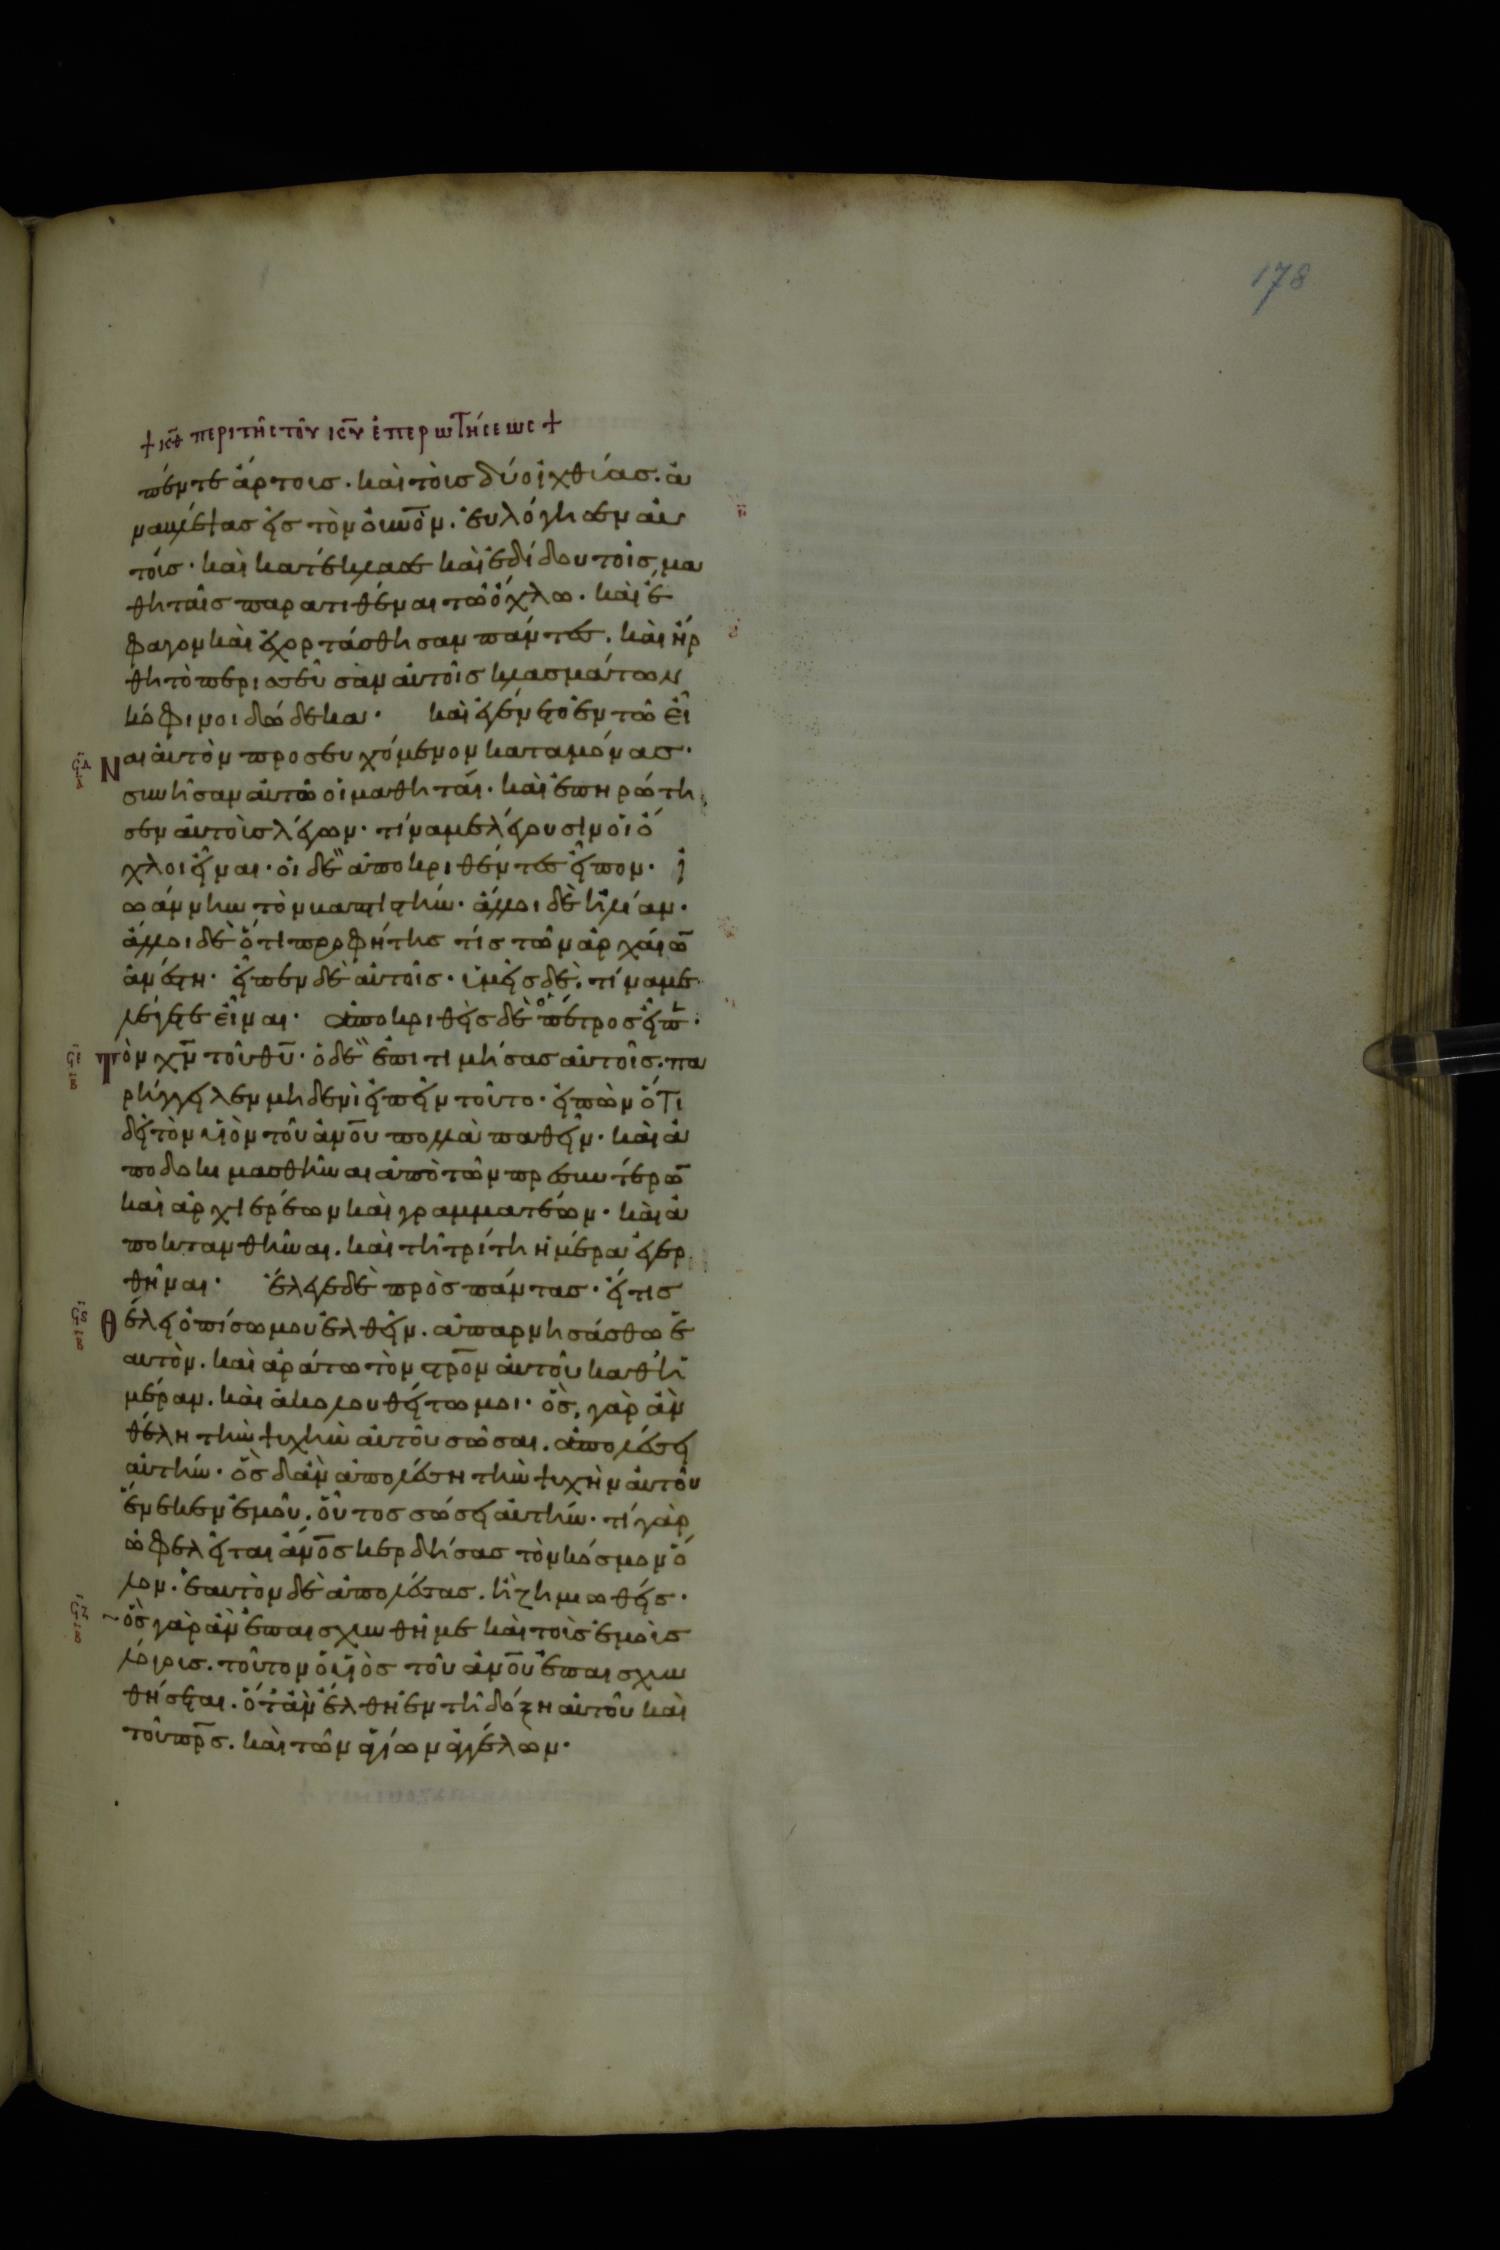 178
+ κθ περιτῆς τοῦ ιυ ἐπερωτήσεως +
πέντε ἄρτοισ · καὶ τοὺσ δύο ἰχθύασ · ἀ
ναβλέψασ εἰσ τὸν οὐνὸν · εὐλόγησεν αὐ
τούσ · καὶ κατέκλασε καὶ ἐδίδου τοῖσ μα
θηταῖσ παρατιθέναι τῶ ὄχλω · καὶ ἔ
φαγον καὶ ἐχορτάσθησαν πάντεσ · καὶ ἤρ
θη τὸ περισσεῦσὰν αὐτοῖσ κλασμάτων
κόφινοι δώδεκα · καὶ ἐγένετο ἐν τῶ εἶ
Ναι αὐτὸν προσευχόμενον καταμόνασ ·
συνῆσαν αὐτῶ οἱ μαθηταί · καὶ ἐπηρώτη
σεν αὐτοὺσ λέγων · τίνα με λέγουσιν οἱ ὄ
χλοι εἶναι · οἱ δὲ ἀποκριθέντεσ εἶπον · ἰ
ωάννην τὸν βαπτιστήν · ἄλλοι δὲ ἠλίαν ·
ἄλλοι δὲ ὅτι προφήτησ τίσ τῶν ἀρχαίω̄
ἀνέστη · εἶπεν δὲ αὐτοῖσ · ὑμεῖσ δὲ · τίνα με
λέγετε εἶναι · ἀποκριθεὶσ δὲ ὁ πέτροσ εἶπ ·
Τὸν χν τοῦ θυ · ὁ δὲ ἐπιτιμήσασ αὐτοῖσ · πα
ρήγγειλεν μηδενὶ εἰπεῖν τοῦτο · εἰπὼν ὅτι
δεῖ τὸν υἱὸν τοῦ ἀνου πολλὰ παθεῖν · καὶ ἀ
ποδοκιμασθῆναι ἀπὸ τῶν πρεσβυτέρω̄
καὶ ἀρχιερέων καὶ γραμματέων · καὶ ἀ
ποκτανθῆναι · καὶ τῆ τρίτη ἡμέρα ἐγερ
θῆναι · ἔλεγε δὲ πρὸσ πάντασ · εἴ τισ
Θέλει ὀπίσω μου ἐλθεῖν · ἀπαρνησάσθω ἑ
αυτὸν · καὶ ἀράτω τὸν στρον αὐτοῦ καθ ἡ
μέραν · καὶ ἀκολουθείτω μοι · ὃσ γὰρ ἂν
θέλη τὴν ψυχὴν αὐτοῦ σῶσαι · ἀπολέσει
αὐτήν · ὃσ δ ἂν ἀπολέση τὴν ψυχὴν αὐτοῦ
ἕνεκεν ἐμοῦ · οὗτοσ σώσει αὐτήν · τί γὰρ
ὠφελεῖται ἄνοσ κερδήσασ τὸν κόσμον ὅ
λον · ἑαυτὸν δὲ ἀπολέσασ · ἢ ζημιωθείσ ·
ὃσ γὰρ ἂν ἐπαισχυνθῆ με καὶ τοὺσ ἐμοὺσ
λόγουσ · τοῦτον ὁ υἱὸσ τοῦ ἀνου ἐπαισχυν
θήσεται · ὅταν ἔλθη ἐν τῆ δόξη αὐτοῦ καὶ
τοῦ πρσ · καὶ τῶν ἁγίων ἀγγέλων ·